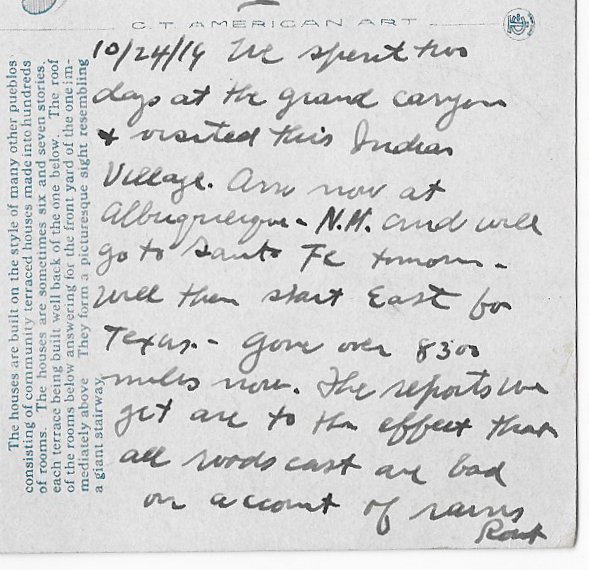 C.T. AMERICAN ART
The houses are built on the style of many other pueblos
consisting of community terraced houses made into hundreds
of rooms. The houses are sometimes six and seven stories,
each terrace being built well back of the one below. The roof
of the rooms below answering for the front yard of the one im-
mediately above They form a picturesque sight resembling
a giant stairway.
10/24/19 We spent two
days at the grand canyon
& visited this Indian
Village. Am now at
Albuquerque - N.M. and will
go to Santa Fe tomorrow -
will then start East for
Texas - Gone over 8300
miles now. The reports we
get are to the effect that
all roads east are bad
on account of rains